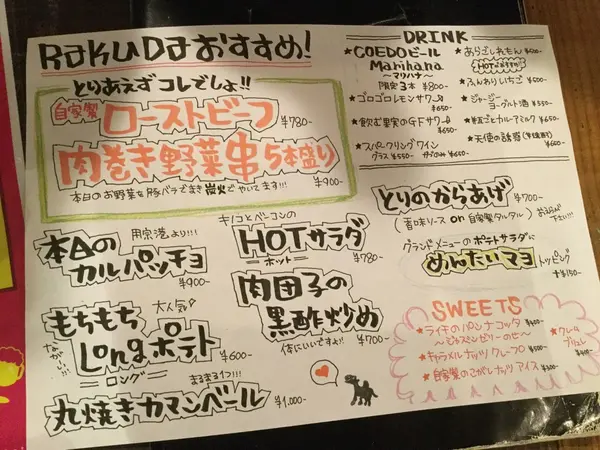 RakuDaおすすめ!
とりあえずコレでしょ!!
自家製 ローストビーフ ¥780-
肉巻き野菜串5本盛り ¥900-
本日のお野菜を豚バラでまき炭火でやいてます!!!
本日のカルパッチョ
用宗港より!!!
¥900-
もちもちLongポテト
大人気♡
ながーい!!!
ロング
¥600-
丸焼きカマンベール
まるまる1つ!!!
¥1.000-
キノコとベーコンの
HOTサラダ
ホット
¥780-
肉団子の黒酢炒め
体にいいですよ!!
¥700-
DRINK
★COEDOビール
Marihana
~マリハナ~
限定3本 ¥800-
★ゴロゴロレモンサワー ¥650-
★飲む果実のGFサワー ¥650-
★スパークリングワイン
グラス ¥550-
★あらごしれもん
HOTができます
★ふんわりいちご ¥500-
★ジャージーヨーグルト酒 ¥550-
¥600-
★天使の誘惑
¥600-
とりのからあげ ¥700-
(香味ソース or 自家製タルタル)
下さい!!!
グランドメニューのポテトサラダに
めんたいマヨ トッピング
+¥150-
SWEETS
★ライチのパンナコッタ
~ジャスミンゼリーのせ~ ¥400-
★キャラメルナッツクレープ ¥500-
★自家製のこがしナッツアイス ¥300-
★クレームブリュレ
¥400-